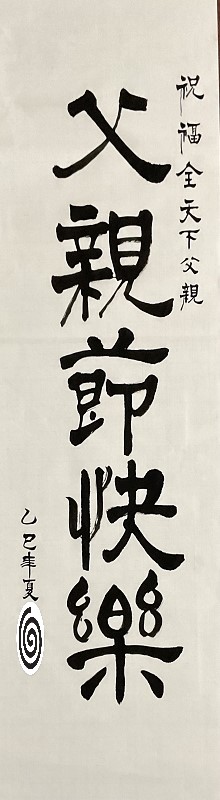 祝福全天下父親
父親節快樂
乙巳年夏